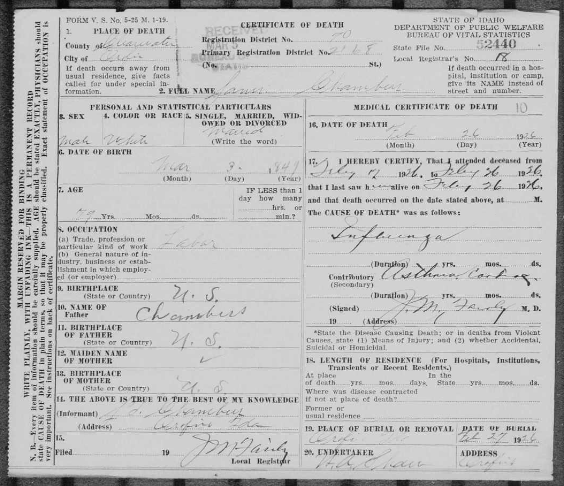 FORM V. S. No. 5-25 M. 1-19.
CERTIFICATE OF DEATH
STATE OF IDAHO
DEPARTMENT OF PUBLIC WELFARE
BUREAU OF VITAL STATISTICS
1. PLACE OF DEATH
RECEIVED
Registration District No.
State File No. 52440
County of Clearwater
Primary Registration District No.
Local Registrar's No. 18
City of
(No. St.)
If death occurs away from usual residence, give facts called for under special information.
If death occurred in a hospital, institution or camp, give its NAME instead of street and number.
2. FULL NAME James Chambers
PERSONAL AND STATISTICAL PARTICULARS
3. SEX 4. COLOR OR RACE 5. SINGLE, MARRIED, WIDOWED OR DIVORCED
Male White Married
(Write the word)
6. DATE OF BIRTH
Mar 1847
(Month) (Day) (Year)
7. AGE
IF LESS than 1 day how many hrs. or min.?
79 Yrs. Mos. ds.
8. OCCUPATION
(a) Trade, profession or particular kind of work Labor
(b) General nature of industry, business or establishment in which employed (or employer).
9. BIRTHPLACE U. S.
(State or Country)
10. NAME OF Father Chambers
11. BIRTHPLACE OF FATHER U. S.
(State or Country)
12. MAIDEN NAME OF MOTHER
13. BIRTHPLACE OF MOTHER U S
(State or Country)
14. THE ABOVE IS TRUE TO THE BEST OF MY KNOWLEDGE
(Informant) Chambers
(Address) Orofino Ida
15.
Filed 19 J M Fairly
Local Registrar
MEDICAL CERTIFICATE OF DEATH 10
16. DATE OF DEATH
Feb 26 1926
(Month) (Day) (Year)
17. I HEREBY CERTIFY, That I attended deceased from
Feby 17 1926, to Feby 26 1926,
that I last saw h alive on Feby 26 1926,
and that death occurred on the date stated above, at M.
The CAUSE OF DEATH* was as follows:
Influenza
(Duration) yrs. mos. ds.
Contributory Asthma
(Secondary)
(Duration) yrs. mos. ds.
(Signed) J. M. Fairly M. D.
19 (Address)
*State the Disease Causing Death; or in deaths from Violent Causes, state (1) Means of Injury; and (2) whether Accidental, Suicidal or Homicidal.
18. LENGTH OF RESIDENCE (For Hospitals, Institutions, Transients or Recent Residents.)
At place of death yrs. mos. days, In the State yrs. mos. ds.
Where was disease contracted if not at place of death?
Former or usual residence
19. PLACE OF BURIAL OR REMOVAL DATE OF BURIAL
Feb 27 1926
20. UNDERTAKER ADDRESS
Orofino
MARGIN RESERVED FOR BINDING
WRITE PLAINLY, WITH UNFADING INK—THIS IS A PERMANENT RECORD
N. B.—Every item of information should be carefully supplied. AGE should be stated EXACTLY, PHYSICIANS should state CAUSE OF DEATH in plain terms, so that it may be properly classified. Exact statement of OCCUPATION is very important. See instructions on back of certificate.